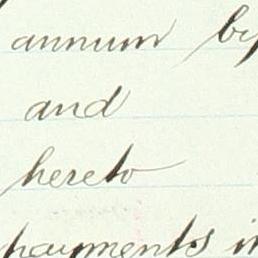 annum by
and
hereto
payments in